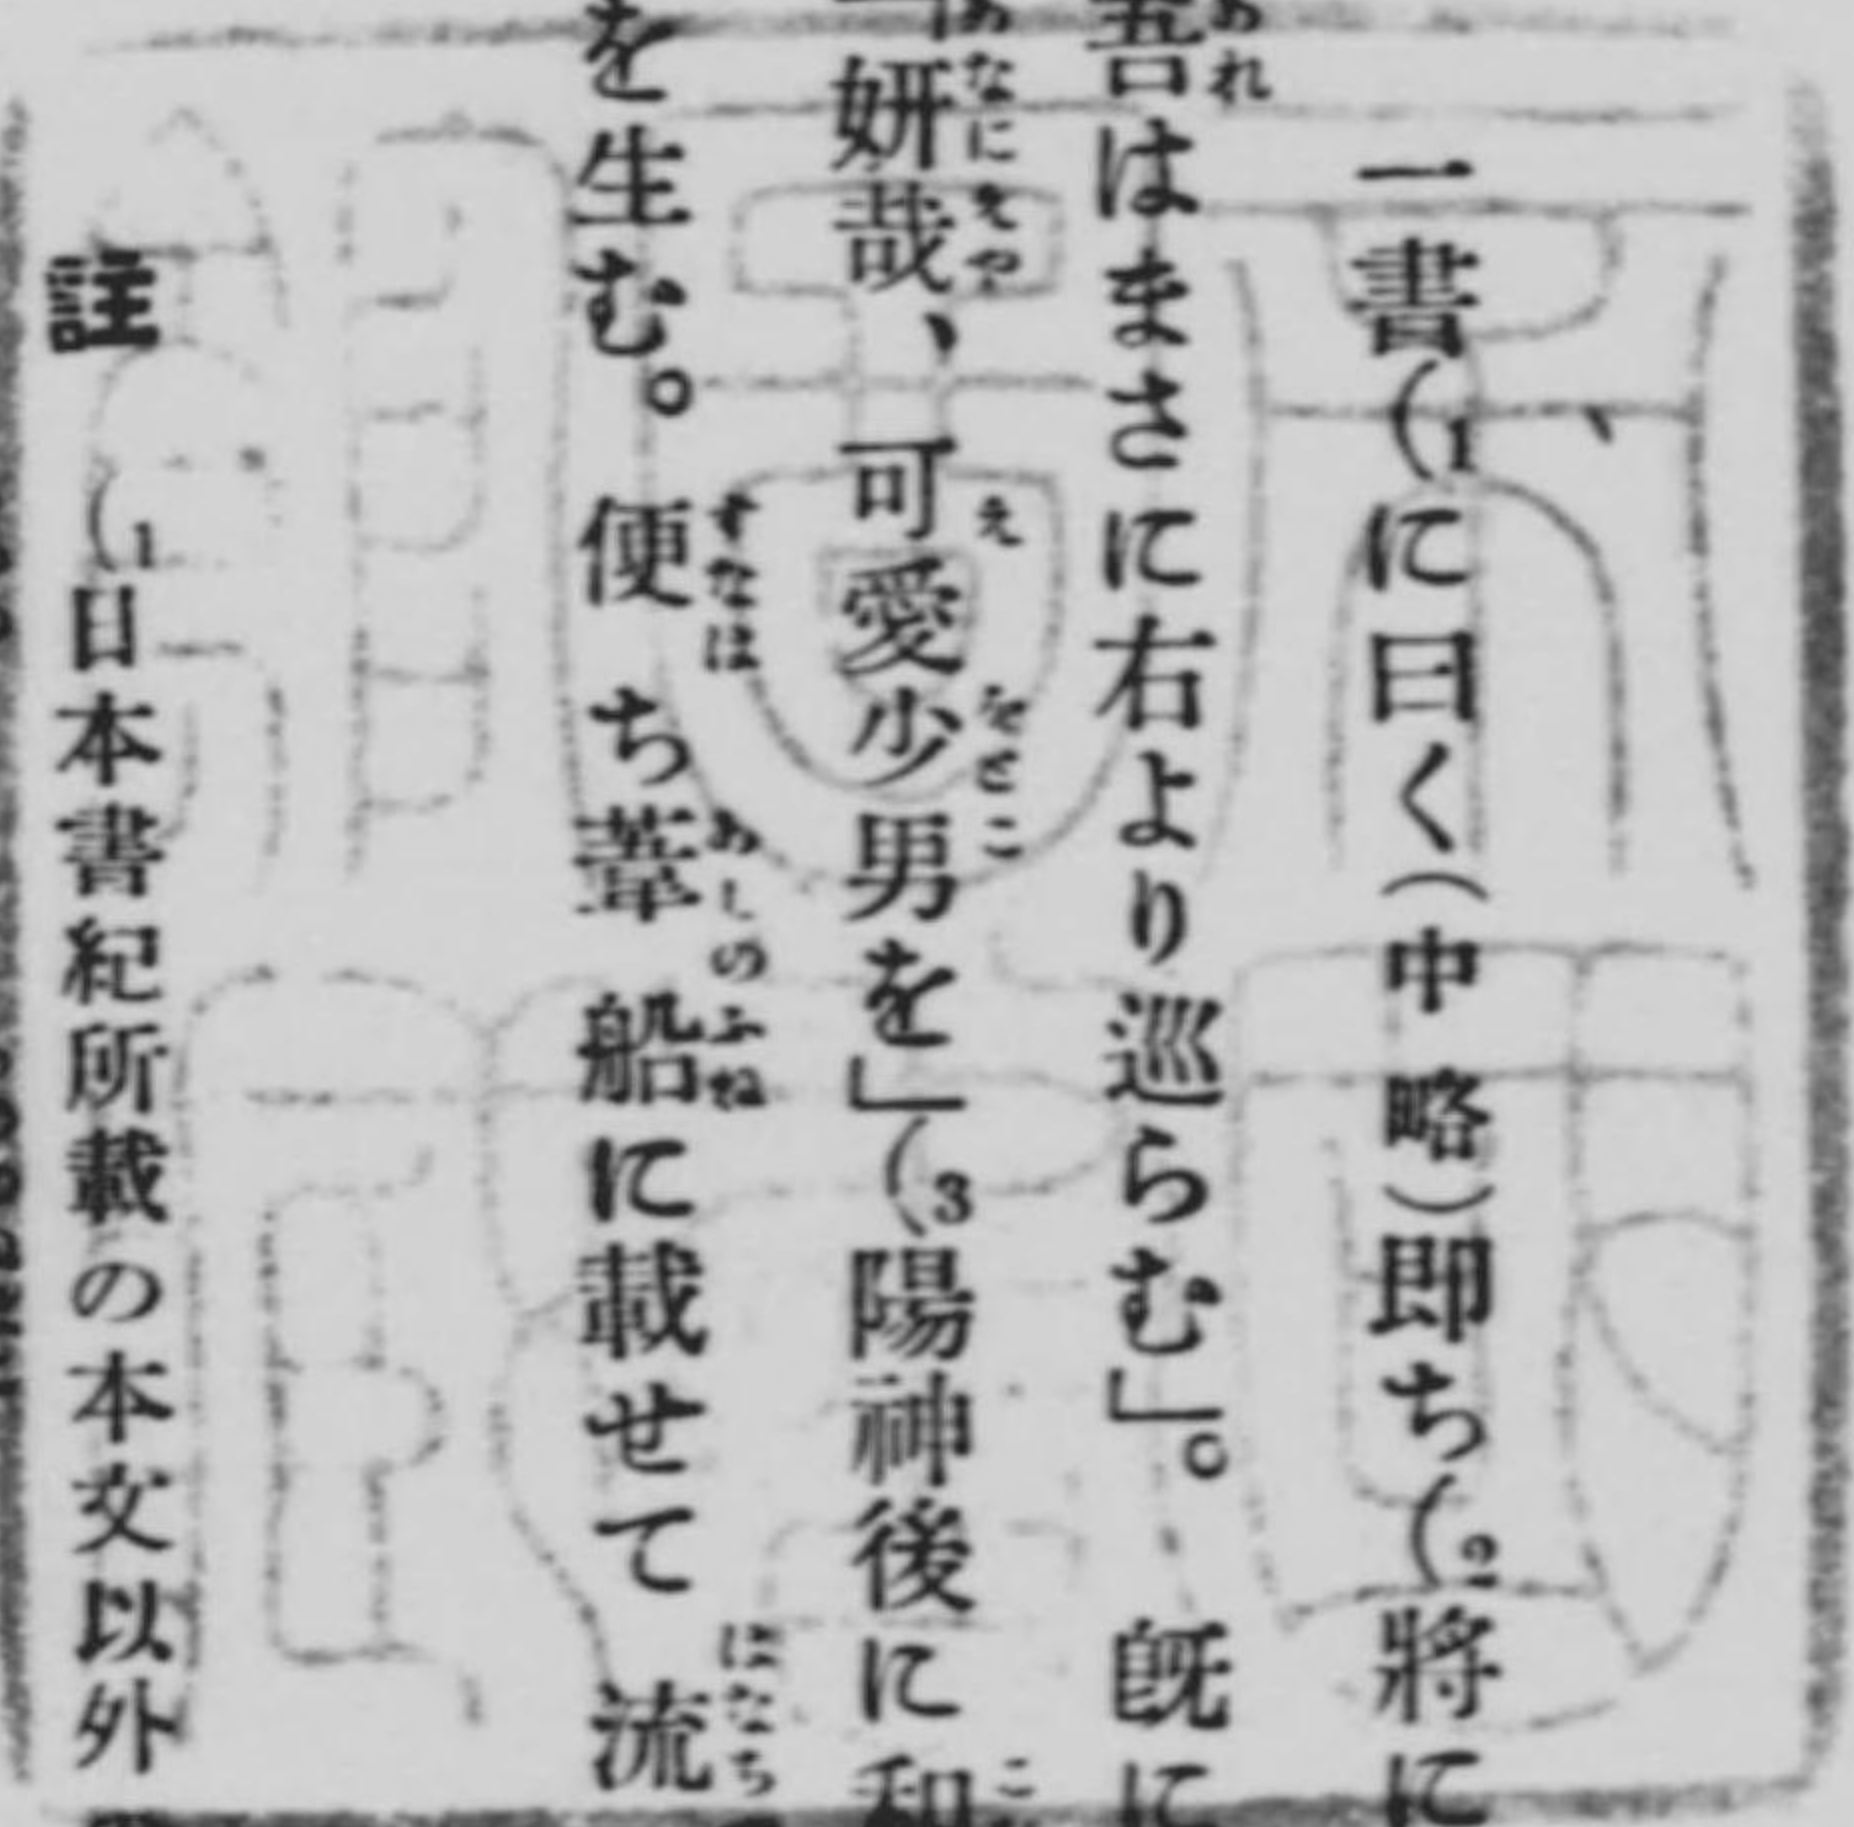 一書(1に曰く(中略)即ち(2將に
吾はまさに右より巡らむ」。既に
「妍哉、可愛少男を」(3陽神後に和
を生む。便ち葦船に載せて流
註 (1日本書紀所載の本文以外